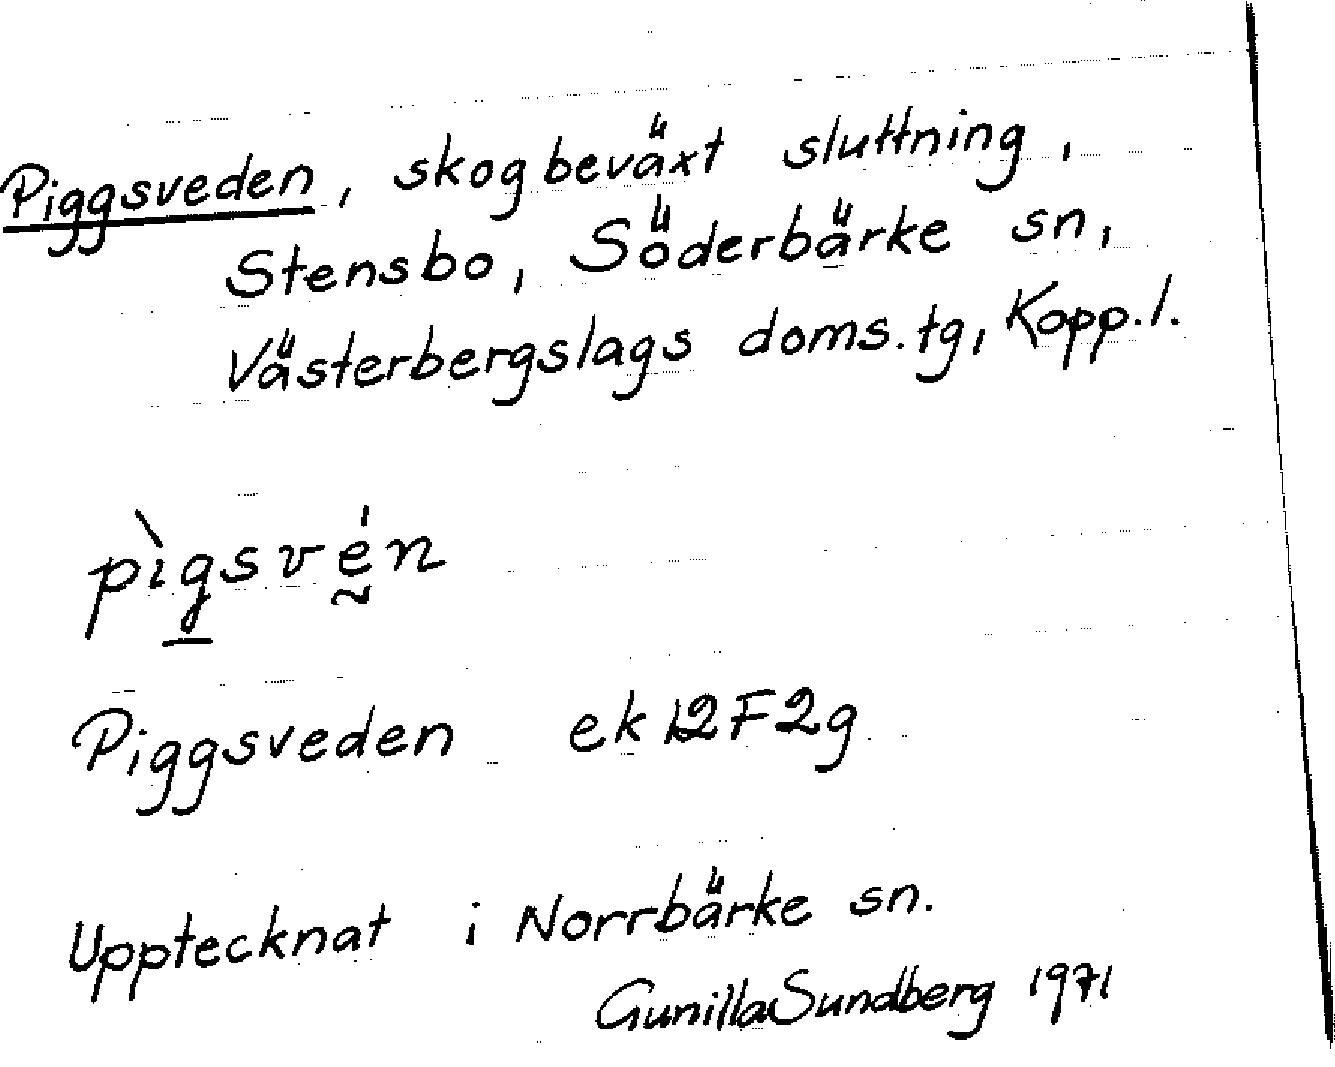 Piggsveden, skogbeväxt sluttning,
Stensbo, Söderbärke sn,
Västerbergslags doms.tg, Kopp.l.
pìgsvén
Piggsveden ek 12F2g
Upptecknat i Norrbärke sn.
Gunilla Sundberg 1971